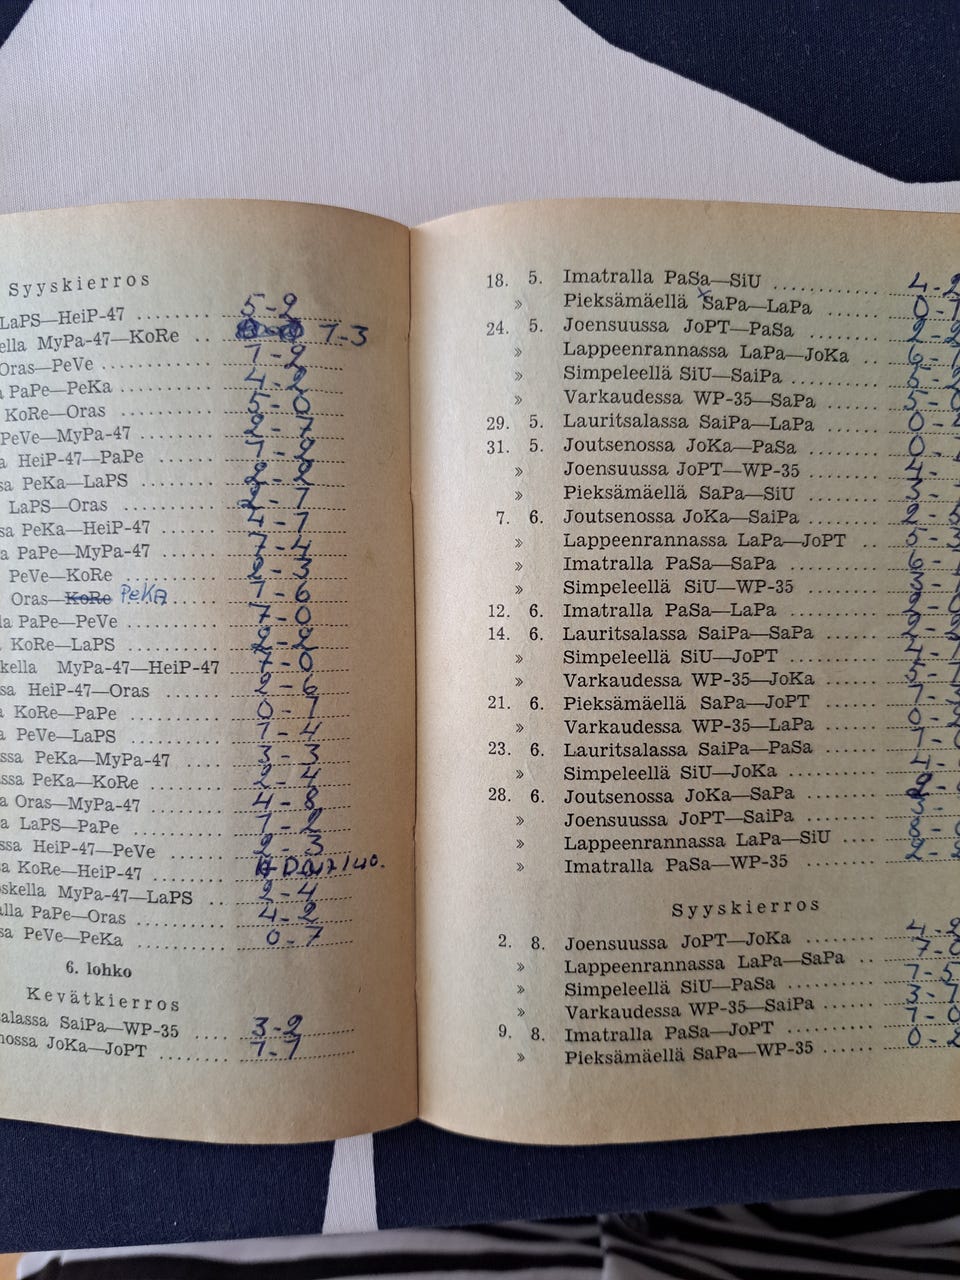 Syyskierros
LaPS—HeiP-47 ........ 5-2
ella MyPa-47—KoRe .. 1-3
Oras—PeVe ........ 1-2
PaPe—PeKa ........ 4-2
KoRe—Oras ........ 5-0
PeVe—MyPa-47 ........ 2-7
a HeiP-47—PaPe ........ 1-2
sa PeKa—LaPS ........ 2-2
LaPS—Oras ........ 2-1
sa PeKa—HeiP-47 ........ 4-1
a PaPe—MyPa-47 ........ 1-4
PeVe—KoRe ........ 2-3
Oras—KoRe PeKA ........ 1-6
la PaPe—PeVe ........ 7-0
KoRe—LaPS ........ 2-2
skella MyPa-47—HeiP-47 7-0
sa HeiP-47—Oras ........ 2-6
a KoRe—PaPe ........ 0-1
a PeVe—LaPS ........ 1-4
ssa PeKa—MyPa-47 ........ 3-3
ssa PeKa—KoRe ........ 2-4
a Oras—MyPa-47 ........ 4-8
a LaPS—PaPe ........ 1-2
ssa HeiP-47—PeVe ........ 2-3
sa KoRe—HeiP-47 ........
skella MyPa-47—LaPS .. 2-4
alla PaPe—Oras ........ 4-2
sa PeVe—PeKa ........ 0-7
6. lohko
Kevätkierros
alassa SaiPa—WP-35 ........ 3-2
nossa JoKa—JoPT ........ 1-1
18. 5. Imatralla PaSa—SiU ........ 4-2
» Pieksämäellä SaPa—LaPa ...... 0-
24. 5. Joensuussa JoPT—PaSa ........ 2-2
» Lappeenrannassa LaPa—JoKa .. 6-
» Simpeleellä SiU—SaiPa ........ 5-2
» Varkaudessa WP-35—SaPa ...... 5-0
29. 5. Lauritsalassa SaiPa—LaPa ...... 0-
31. 5. Joutsenossa JoKa—PaSa ........ 0-
» Joensuussa JoPT—WP-35 ........ 4-
» Pieksämäellä SaPa—SiU ........ 3-
7. 6. Joutsenossa JoKa—SaiPa ........ 2-5
» Lappeenrannassa LaPa—JoPT .. 5-3
» Imatralla PaSa—SaPa ........ 6-
» Simpeleellä SiU—WP-35 ........ 3-
12. 6. Imatralla PaSa—LaPa ........ 2-
14. 6. Lauritsalassa SaiPa—SaPa ...... 2-
» Simpeleellä SiU—JoPT ........ 4-
» Varkaudessa WP-35—JoKa ...... 5-
21. 6. Pieksämäellä SaPa—JoPT ...... 1-
» Varkaudessa WP-35—LaPa ...... 0-
23. 6. Lauritsalassa SaiPa—PaSa ...... 1-
» Simpeleellä SiU—JoKa ........ 4-
28. 6. Joutsenossa JoKa—SaPa ........ 2-
» Joensuussa JoPT—SaiPa ........ 3-
» Lappeenrannassa LaPa—SiU .... 8-
» Imatralla PaSa—WP-35 ........ 2-
Syyskierros
2. 8. Joensuussa JoPT—JoKa ........ 4-2
» Lappeenrannassa LaPa—SaPa .. 7-0
» Simpeleellä SiU—PaSa ........ 1-5
» Varkaudessa WP-35—SaiPa ...... 3-1
9. 8. Imatralla PaSa—JoPT ........ 1-0
» Pieksämäellä SaPa—WP-35 ...... 0-2